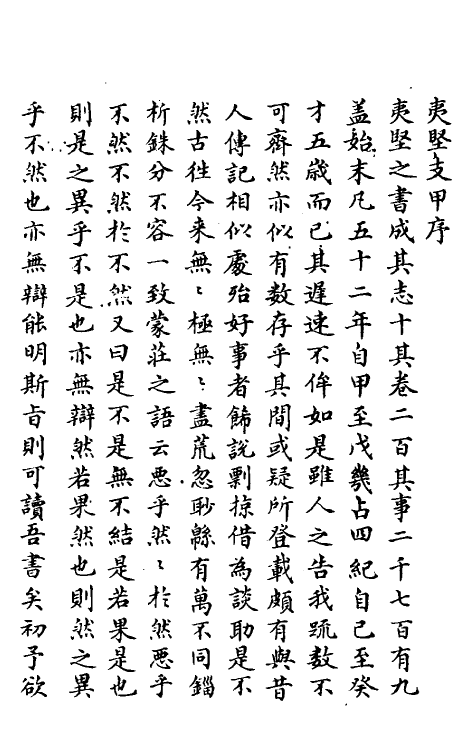 夷堅支甲序
夷堅之書成其志十其卷二百其事二千七百有九
蓋始末凡五十二年自甲至戊幾占四紀自己至癸
才五歲而已其遲速不侔如是雖人之告我疏數不
可齊然亦似有数存乎其間或疑所登載頗有與昔
人傳記相似處殆好事者飾說剽掠借為談助是不
然古徃今来無〻極無〻盡荒忽眇緜有萬不同錙
析銖分不容一致蒙莊之語云悪乎然〻於然悪乎
不然不然於不然又曰是不是無不結是若果是也
則是之異乎不是也亦無辯然若果然也則然之異
乎不然也亦無辯能明斯旨則可讀吾書矣初予欲